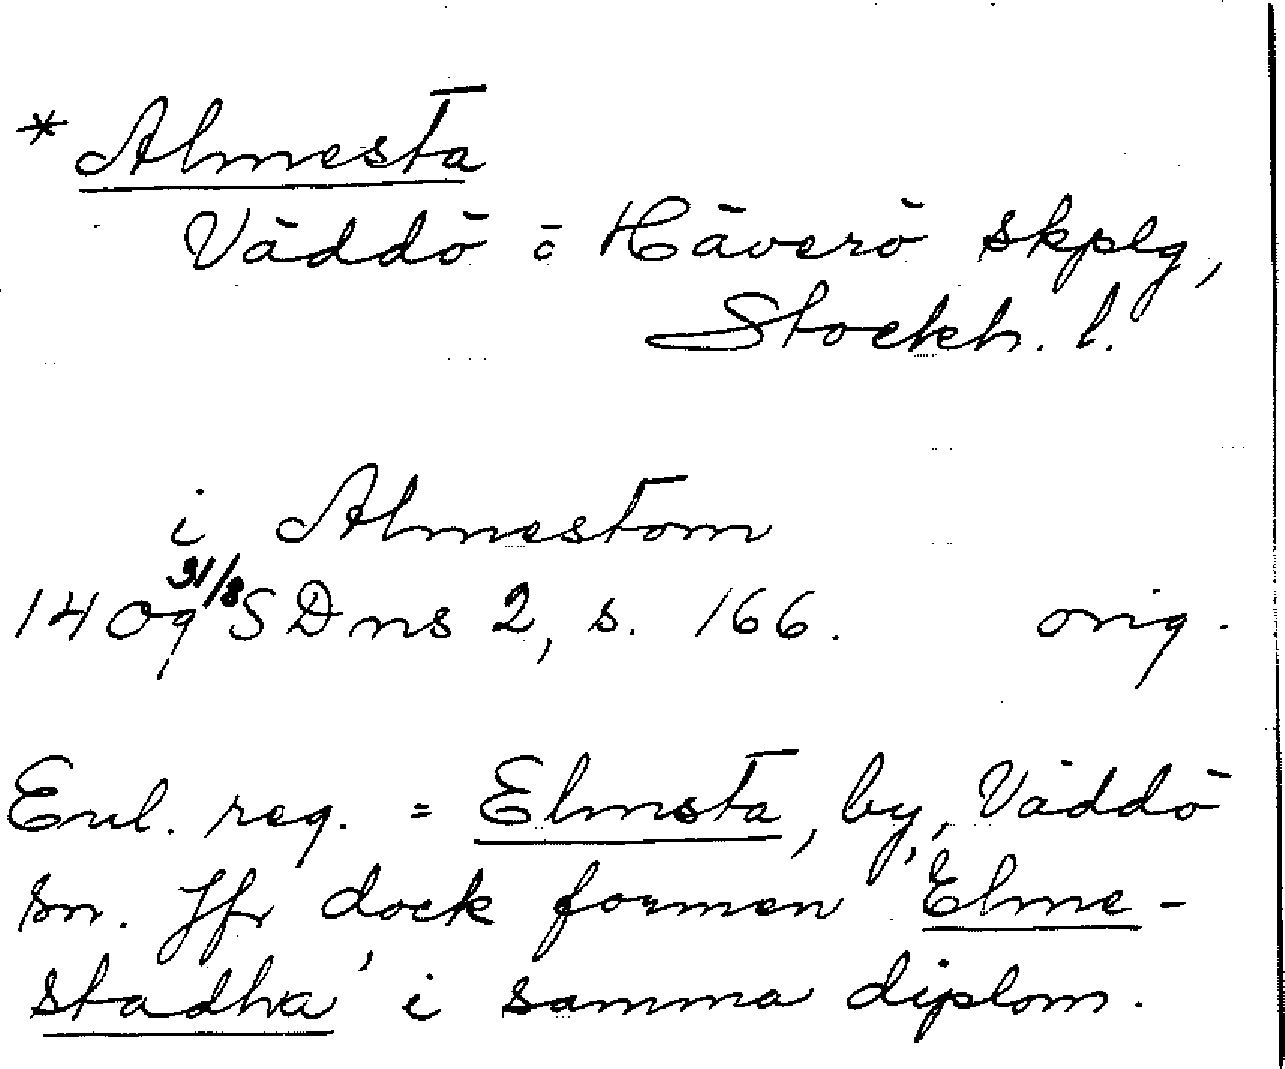 *Almesta
Väddö o Häverö skplg,
Stockh. l.
i Almestom
1409 31/8 SDns 2, s. 166. orig.
Enl. reg. = Elmsta, by, Väddö
sn. Jfr dock formen Elme-
stadha i samma diplom.